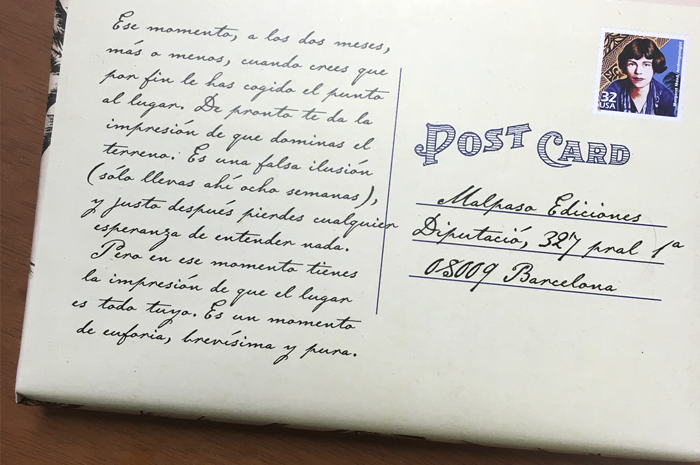 Ese momento, a los dos meses,
más o menos, cuando crees que
por fin le has cogido el punto
al lugar. De pronto te da la
impresión de que dominas el
terreno. Es una falsa ilusión
(solo llevas ahí ocho semanas),
y justo después pierdes cualquier
esperanza de entender nada.
Pero en ese momento tienes
la impresión de que el lugar
es todo tuyo. Es un momento
de euforia, brevísima y pura.
32
USA
Margaret Mead, anthropologist
POST CARD
Malpaso Ediciones
Diputació, 327 pral 1ª
08009 Barcelona